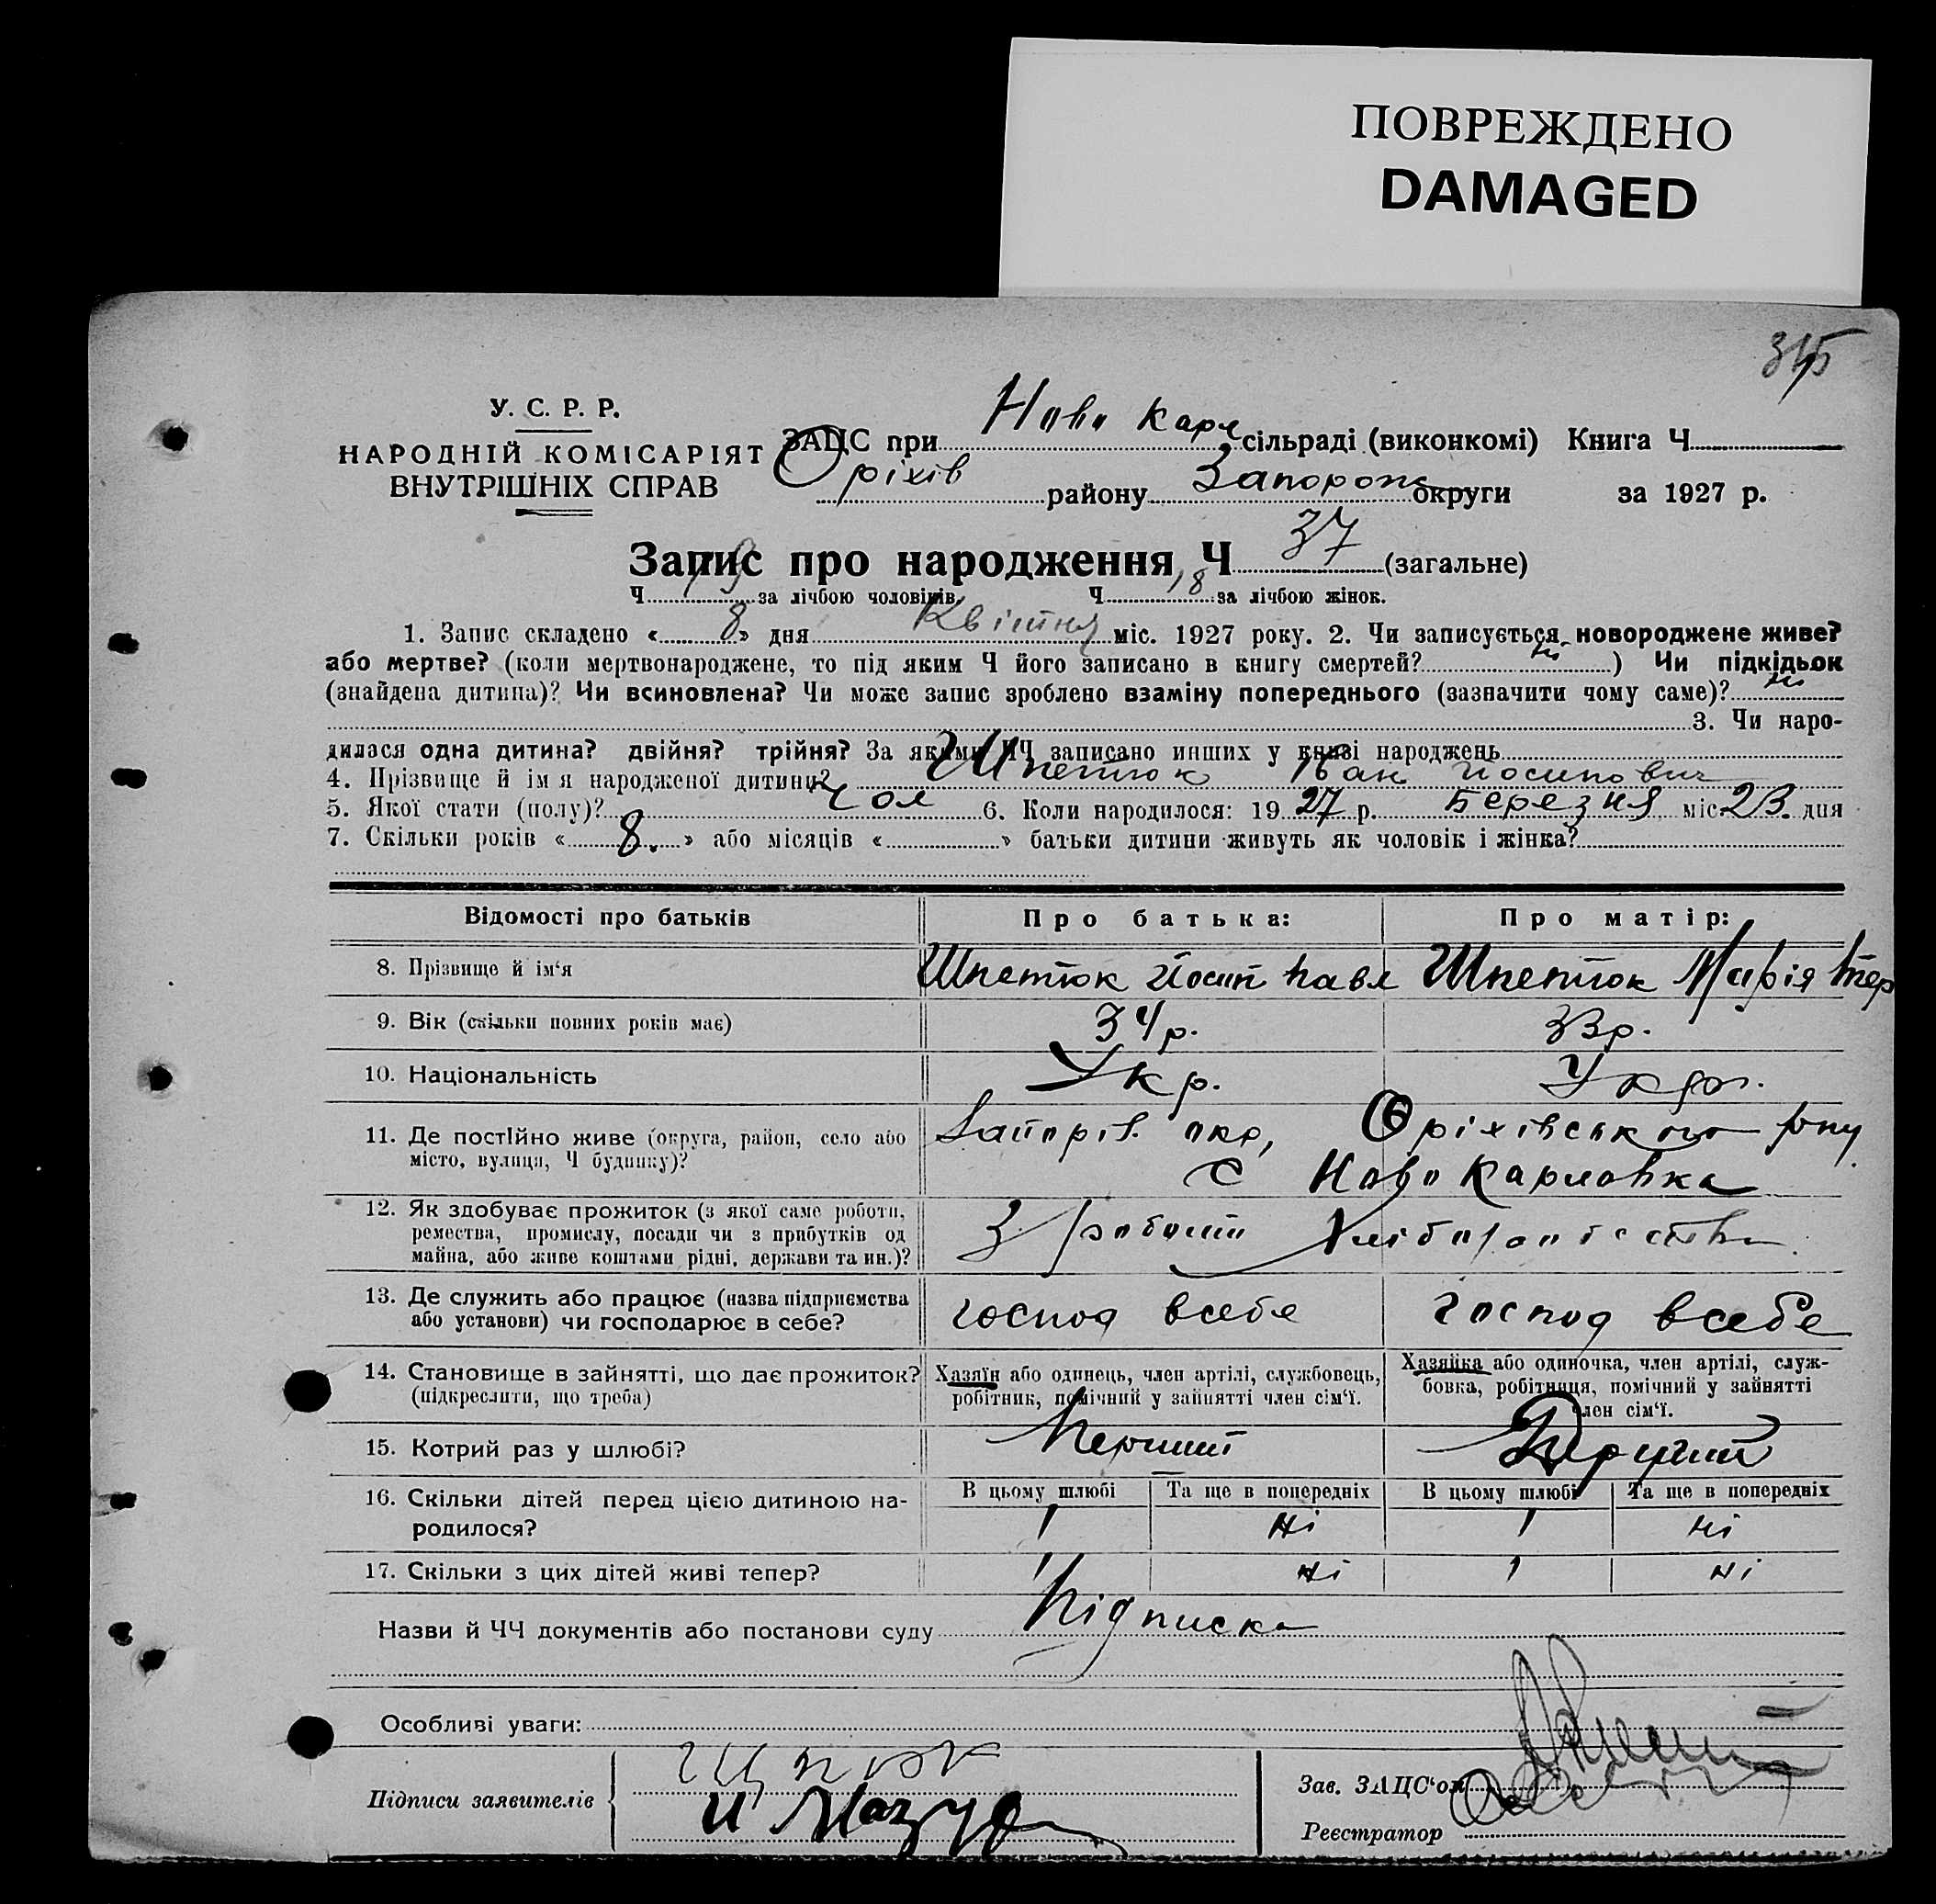 ПОВРЕЖДЕНО
DAMAGED
315
У. С. Р. Р.
НАРОДНІЙ КОМІСАРІЯТ
ВНУТРІШНІХ СПРАВ
ЗАЦС при Ново Карл сільраді (виконкомі) Книга Ч
Оріхів району Запорож округи за 1927 р.
Запис про народження Ч 37 (загальне)
Ч 19 за лічбою чоловіків. Ч 18 за лічбою жінок.
1. Запис складено « 8 » дня Квітня міс. 1927 року. 2. Чи записується новороджене живе?
або мертве? (коли мертвонароджене, то під яким Ч його записано в книгу смертей? ні ) Чи підкідьок
(знайдена дитина)? Чи всиновлена? Чи може запис зроблено взаміну попереднього (зазначити чому саме)? ні
3. Чи наро-
дилася одна дитина? двійня? трійня? За якими ЧЧ записано инших у книзі народжень
4. Прізвище й імя народженої дитини? Шпетюк Іван Йосипович
5. Якої стати (полу)? Чол 6. Коли народилося: 19 27 р. Березня міс. 23. дня
7. Скільки років « 8. » або місяців « » батьки дитини живуть як чоловік і жінка?
Відомості про батьків Про батька: Про матір:
8. Прізвище й ім'я Шпетюк Йосип Павл Шпетюк Марія
9. Вік (скільки повних років має) 34р. 33р.
10. Національність Укр. Укр.
11. Де постійно живе (округа, район, село або Запоріз. окр, Оріхівського р-ну
місто, вулиця, Ч будинку)? с Ново Карловка
12. Як здобуває прожиток (з якої саме роботи, З роботи Хліборобства
ремества, промислу, посади чи з прибутків од
майна, або живе коштами рідні, держави та ин.)?
13. Де служить або працює (назва підприємства господ всебе господ всебе
або установи) чи господарює в себе?
14. Становище в зайнятті, що дає прожиток? Хазяїн або одинець, член артілі, службовець, Хазяйка або одиночка, член артілі, служ-
(підкреслити, що треба) робітник, помічний у зайнятті член сім'ї. бовка, робітниця, помічний у зайнятті
член сім'ї.
15. Котрий раз у шлюбі? Перший Перший
16. Скільки дітей перед цією дитиною на- В цьому шлюбі Та ще в попередніх В цьому шлюбі Та ще в попередніх
родилося? 1 ні 1 ні
17. Скільки з цих дітей живі тепер? 1 ні 1 ні
Назви й ЧЧ документів або постанови суду Підписка
Особливі уваги:
Підписи заявителів
И Мазур
Зав. ЗАЦС'ом
Реєстратор